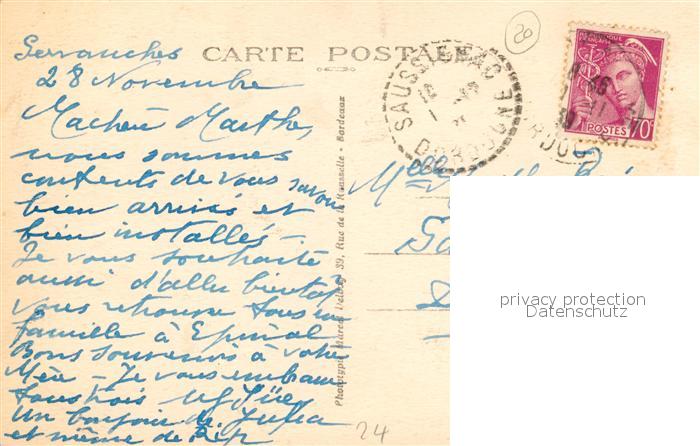 CARTE POSTALE
28 Novembre
Ma chère Marthe,
nous sommes
contents de vous savoir
bien arrivés et
bien installés -
Je vous souhaite
aussi d'aller bientôt
vous retrouver tous en
famille à Epinal
Bons souvenirs à votre
Mère - Je vous embrasse
tous trois
Un bonjour de Julia
et même de
Phototypie Marcel Delboy 39, Rue de la Rousselle - Bordeaux
20
SAUSSIGNAC
DORDOGNE
POSTES
70c
Mlle
24
privacy protection
Datenschutz